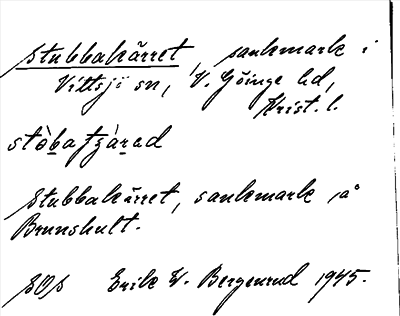 Stubbakärret, sankmark i
Vittsjö sn, V. Göinge hd,
Krist. l.
Stubbakärret, sankmark på
Brunshult.
Erik W. Bergenrud 1945.